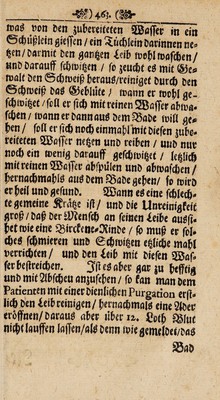 463.
was von den zubereiteten Wasser in ein
Schüßlein giessen/ ein Tüchlein darinnen ne-
tzen/ darmit den gantzen Leib wohl waschen/
und darauff schwitzen/ so zeucht es mit Ge-
walt den Schweiß heraus/ reiniget durch den
Schweiß das Geblüte/ wann er wohl ge-
schwitzet/ soll er sich mit reinen Wasser abwa-
schen/ wann er dann aus dem Bade will ge-
hen/ soll er sich noch einmahl mit diesen zube-
reiteten Wasser netzen und reiben/ und nur
noch ein wenig darauff geschwitzet/ letzlich
mit reinen Wasser abspülen und abwaschen/
hernachmahls aus dem Bade gehen/ so wird
er heil und gesund. Wann es eine schlech-
te gemeine Krätze ist/ und die Unreinigkeit
groß/ daß der Mensch an seinen Leibe aussi-
het wie eine Birckene-Rinde/ so muß er sol-
ches schmieren und Schwitzen etzliche mahl
verrichten/ und den Leib mit diesen Was-
ser bestreichen. Ist es aber gar zu hefftig
und mit Abscheu anzusehen/ so kan man dem
Patienten mit einer dienlichen Purgation erst-
lich den Leib reinigen/ hernachmals eine Ader
eröffnen/ daraus aber über 12. Loth Blut
nicht lauffen lassen/ als denn wie gemeldet/ das
Bad